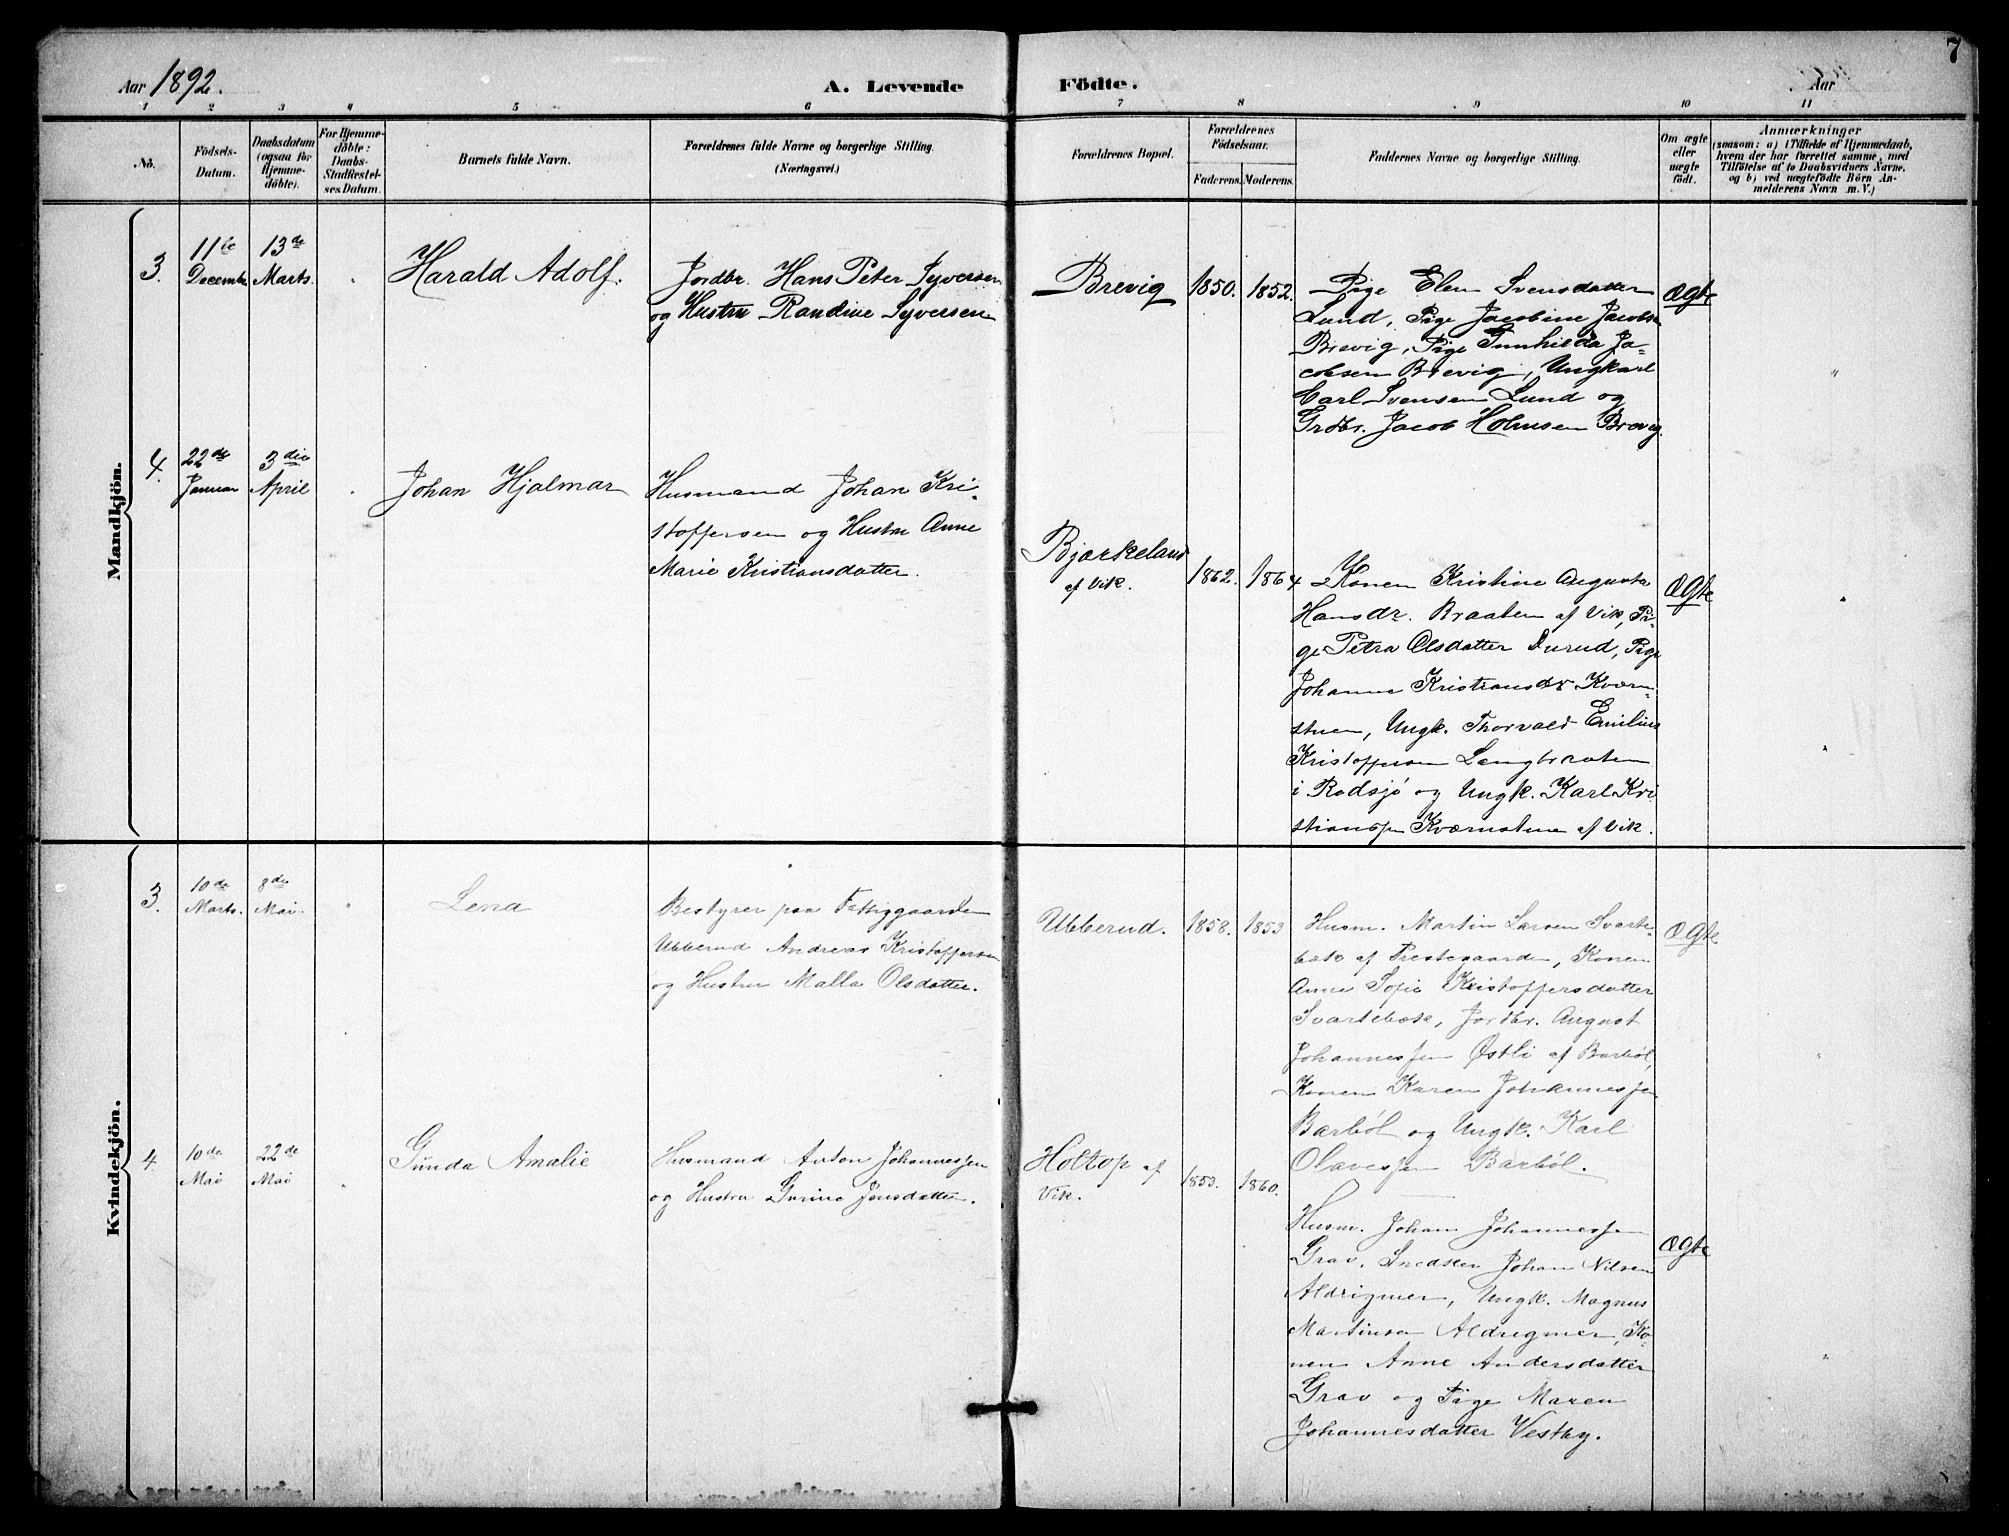 7
Aar 1892.
A. Levende
Födte.
Aar
1 2 3 4 5 6 7 8 9 10 11
No.
Födsels-
Datum.
Daabsdatum
(ogsaa for
Hjemme-
döbte).
For Hjemme-
döbte:
Daabs-
Stadfæstel-
ses Datum.
Barnets fulde Navn.
Forældrenes fulde Navne og borgerlige Stilling.
(Næringsvei.)
Forældrenes Bopæl.
Forældrenes
Födselsaar.
Faderens.
Moderens.
Faddernes Navne og borgerlige Stilling.
Om ægte
eller
uægte
födt.
Anmærkninger
(saasom: a) i Tilfælde af Hjemmedaab,
hvem der har forrettet samme, med
Tilföielse af to Daabsvidners Navne.
og b) ved uægtefödte Börn An-
melderens Navn m. V.)
Mandkjön.
3.
11te
December
13de
Marts.
Harald Adolf.
Jordbr. Hans Peter Syversen
og Hustru Randine Syversen
Brevig
1850.
1852.
Pige Elen Svensdatter
Lund, Pige Jacobine Jacobsen
Brevig, Pige Gunhilda Ja=
cobsen Brevig, Ungkarl
Carl Svensen Lund og
Grdbr. Jacob Holmsen Brevig.
Ægte
4.
22de
Januar
3die
April
Johan Hjalmar
Husmand Johan Kri-
stoffersen og Hustru Anne
Marie Kristiansdatter.
Bjørkeland
af Vik.
1862.
1864
Konen Kristine Augusta
Hansdr. Braaten af Vik, Pi-
ge Petra Olsdatter Durud, Pige
Johanne Kristiansdr Kværn-
stuen, Ungk. Thorvald Emilius
Kristoffersen Langbraaten
i Rodsjö og Ungk. Karl Kri
stiansen Kværnstuen af Vik.
Ægte
Kvindekjön.
3.
10de
Marts.
8de
Mai.
Lena
Bestyrer paa Fattiggaarden
Ubberud Andreas Kristoffersen
og Hustru Malla Olsdatter.
Ubberud.
1858.
1853
Husm. Martin Larsen Svarte-
bæk af Prestegaarden, Konen
Anne Sofie Kristoffersdatter
Svartebæk, Jordbr. August
Johannessen Østli af Barböl,
Konen Karen Johannessen
Barböl og Ungk. Karl
Olavessen Barböl.
Ægte
4.
10de
Mai
22de
Mai
Gunda Amalie
Husmand Anton Johannessen
og Hustru Gurine Jensdatter.
Holtop af
Vik.
1853.
1860.
Husm. Johan Johannessen
Grav, Snedker Johan Nilsen
Aldrigmer, Ungk. Magnus
Martinsen Aldrigmer, Ko-
nen Anne Andersdatter
Grav og Pige Maren
Johannesdatter Vestby.
Ægte